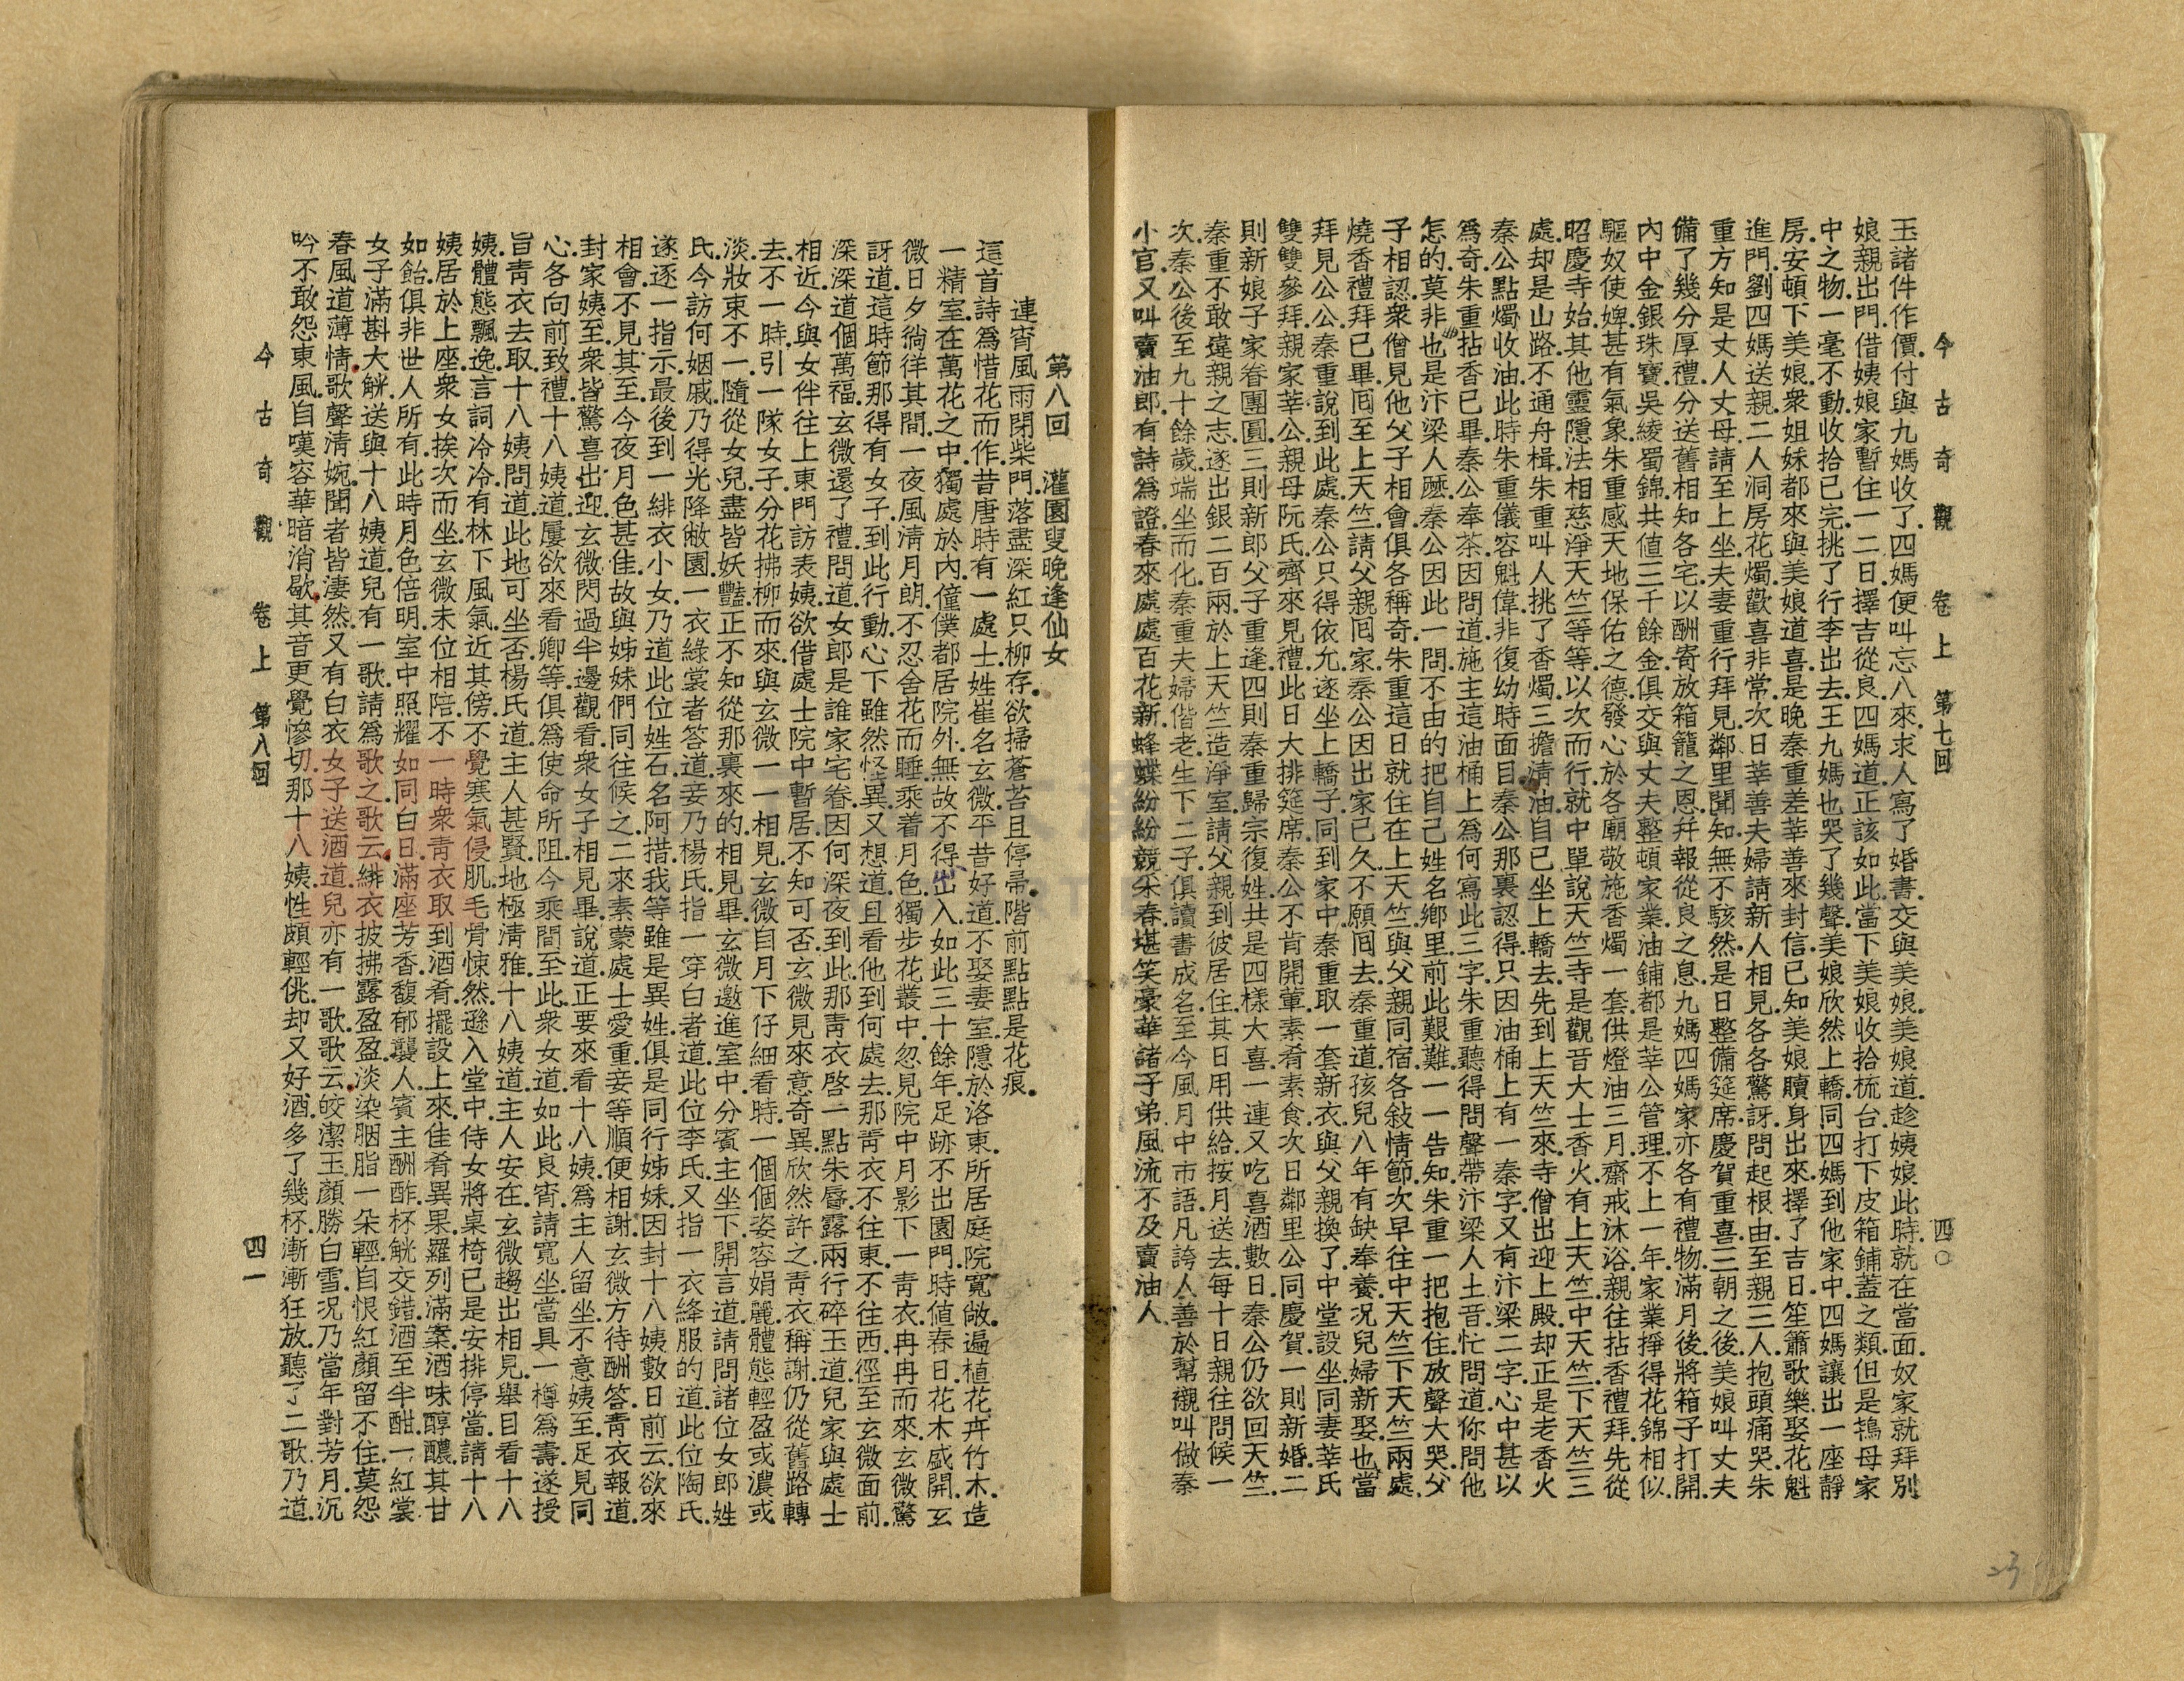 今古奇觀　卷上　第七回　四〇
玉諸件作價.付與九媽收了.四媽便叫忘八來.求人寫了婚書.交與美娘.美娘道.趁姨娘此時.就在當面.奴家就拜別
娘親出門.借姨娘家暫住一二日.擇吉從良.四媽道.正該如此.當下美娘收拾梳台.打下皮箱鋪蓋之類.但是鴇母家
中之物.一毫不動.收拾已完.挑了行李出去.王九媽也哭了幾聲.美娘欣然上轎.同四媽到他家中.四媽讓出一座靜
房.安頓下美娘.衆姐妹都來與美娘道喜.是晚秦重差莘善來封信.已知美娘贖身出來.擇了吉日.笙簫歌樂.娶花魁
進門.劉四媽送親.二人洞房花燭.歡喜非常.次日莘善夫婦請新人相見.各各驚訝.問起根由.至親三人.抱頭痛哭.朱
重方知是丈人丈母.請至上坐.夫妻重行拜見.鄰里聞知.無不駭然.是日整備筵席慶賀重喜.三朝之後.美娘叫丈夫
備了幾分厚禮.分送舊相知各宅.以酬寄放箱籠之恩.幷報從良之息.九媽四媽家亦各有禮物.滿月後.將箱子打開.
內中金銀珠寶.吳綾蜀錦.共値三千餘金.俱交與丈夫整頓家業.油鋪都是莘公管理.不上一年.家業掙得花錦相似.
驅奴使婢.甚有氣象.朱重感天地保佑之德.發心於各廟敬施香燭一套.供燈油三月.齋戒沐浴.親往拈香禮拜.先從
昭慶寺始.其他靈隱法相慈淨天竺等等.以次而行.就中單說天竺寺.是觀音大士香火.有上天竺.中天竺.下天竺.三
處.却是山路.不通舟楫.朱重叫人挑了香燭.三擔淸油.自已坐上轎去.先到上天竺來.寺僧出迎上殿.却正是老香火
秦公.點燭收油.此時朱重儀容魁偉.非復幼時面目.秦公那裏認得.只因油桶上有一秦字.又有汴梁二字.心中甚以
爲奇.朱重拈香已畢.秦公奉茶.因問道.施主這油桶上爲何寫此三字.朱重聽得問聲.帶汴梁人土音.忙問道.你問他
怎的.莫非也是汴梁人麽.秦公因此一問.不由的把自己姓名鄕里.前此艱難.一一告知.朱重一把抱住.放聲大哭.父
子相認.衆僧見他父子相會.俱各稱奇.朱重這日就住在上天竺.與父親同宿.各敍情節.次早往中天竺.下天竺.兩處.
燒香禮拜已畢.囘至上天竺.請父親囘家.秦公因出家已久.不願囘去.秦重道.孩兒八年有缺奉養.况兒婦新娶.也當
拜見公公.秦重說到此處.秦公只得依允.遂坐上轎子.同到家中.秦重取一套新衣.與父親換了.中堂設坐.同妻莘氏
雙雙參拜.親家莘公.親母阮氏.齊來見禮.此日大排筵席.秦公不肯開葷.素肴素食.次日鄰里公同慶賀.一則新婚.二
則新娘子家眷團圓.三則新郎父子重逢.四則秦重歸宗復姓.共是四樣大喜.一連又吃喜酒數日.秦公仍欲回天竺.
秦重不敢違親之志.逐出銀二百兩.於上天竺造淨室.請父親到彼居住.其日用供給.按月送去.每十日親往問候一
次.秦公後至九十餘歲.端坐而化.秦重夫婦偕老.生下二子.俱讀書成名.至今風月中市語.凡誇人善於幫襯.叫做秦
小官.又叫賣油郎.有詩爲證.春來處處百花新.蜂蝶紛紛競朵春.堪笑豪華諸子弟.風流不及賣油人.
第八回　灌園叟晚逢仙女
連宵風雨閉柴門.落盡深紅只柳存.欲掃蒼苔且停帚.階前點點是花痕.
這首詩爲惜花而作.昔唐時有一處士.姓崔名玄微.平昔好道.不娶妻室.隱於洛東.所居庭院寬敞.遍植花卉竹木.造
一精室.在萬花之中.獨處於內.僮僕都居院外.無故不得出入.如此三十餘年.足跡不出園門.時値春日.花木盛開.玄
微日夕徜徉其間.一夜風淸月朗.不忍舍花而睡.乘着月色.獨步花叢中.忽見院中月影下.一靑衣冉冉而來.玄微驚
訝道.這時節那得有女子到此行動.心下雖然怪異.又想道.且看他到何處去.那靑衣不往東.不往西.徑至玄微面前.
深深道個萬福.玄微還了禮.問道.女郎是誰家宅眷.因何深夜到此.那靑衣啓一點朱唇.露兩行碎玉.道.兒家與處士
相近.今與女伴往上東門訪表姨.欲借處士院中暫居.不知可否.玄微見來意奇異.欣然許之.靑衣稱謝.仍從舊路轉
去.不一時.引一隊女子.分花拂柳而來.與玄微一一相見.玄微自月下仔細看時.一個個姿容娟麗.體態輕盈.或濃或
淡.妝束不一.隨從女兒.盡皆妖豔.正不知從那裏來的.相見畢.玄微邀進室中.分賓主坐下.開言道.請問諸位女郎姓
氏.今訪何姻戚.乃得光降敝園.一衣綠裳者答道.妾乃楊氏.指一穿白者道.此位李氏.又指一衣絳服的道.此位陶氏.
遂逐一指示.最後到一緋衣小女.乃道.此位姓石名阿措.我等雖是異姓.俱是同行姊妹.因封十八姨數日前云欲來
相會.不見其至.今夜月色甚佳.故與姊妹們同往候之.二來素蒙處士愛重.妾等順便相謝.玄微方待酬答.靑衣報道.
封家姨至.衆皆驚喜出迎.玄微閃過半邊觀看.衆女子相見畢.說道.正要來看十八姨.爲主人留坐.不意姨至.足見同
心.各向前致禮.十八姨道.屢欲來看卿等.俱爲使命所阻.今乘間至此.衆女道.如此良宵.請寬坐.當具一樽爲壽.遂授
旨靑衣去取.十八姨問道.此地可坐否.楊氏道.主人甚賢.地極淸雅.十八姨道.主人安在.玄微趨出相見.舉目看十八
姨.體態飄逸.言詞冷冷.有林下風氣.近其傍.不覺寒氣侵肌.毛骨悚然.遜入堂中.侍女將桌椅已是安排停當.請十八
姨居於上座.衆女挨次而坐.玄微未位相陪.不一時.衆靑衣取到酒肴.擺設上來.佳肴異果.羅列滿案.酒味醇醲.其甘
如飴.俱非世人所有.此時月色倍明.室中照耀.如同白日.滿座芳香.馥郁襲人.賓主酬酢.杯觥交錯.酒至半酣.一紅裳
女子滿斟大觥.送與十八姨道.兒有一歌.請爲歌之.歌云.緋衣披拂露盈盈.淡染胭脂一朵輕.自恨紅顏留不住.莫怨
春風道薄情.歌聲淸婉.聞者皆淒然.又有白衣女子送酒道.兒亦有一歌.歌云.皎潔玉顏勝白雪.况乃當年對芳月.沉
吟不敢怨東風.自嘆容華暗消歇.其音更覺慘切.那十八姨性頗輕佻.却又好酒.多了幾杯.漸漸狂放.聽了二歌.乃道.
今古奇觀　卷上　第八回　四一
23